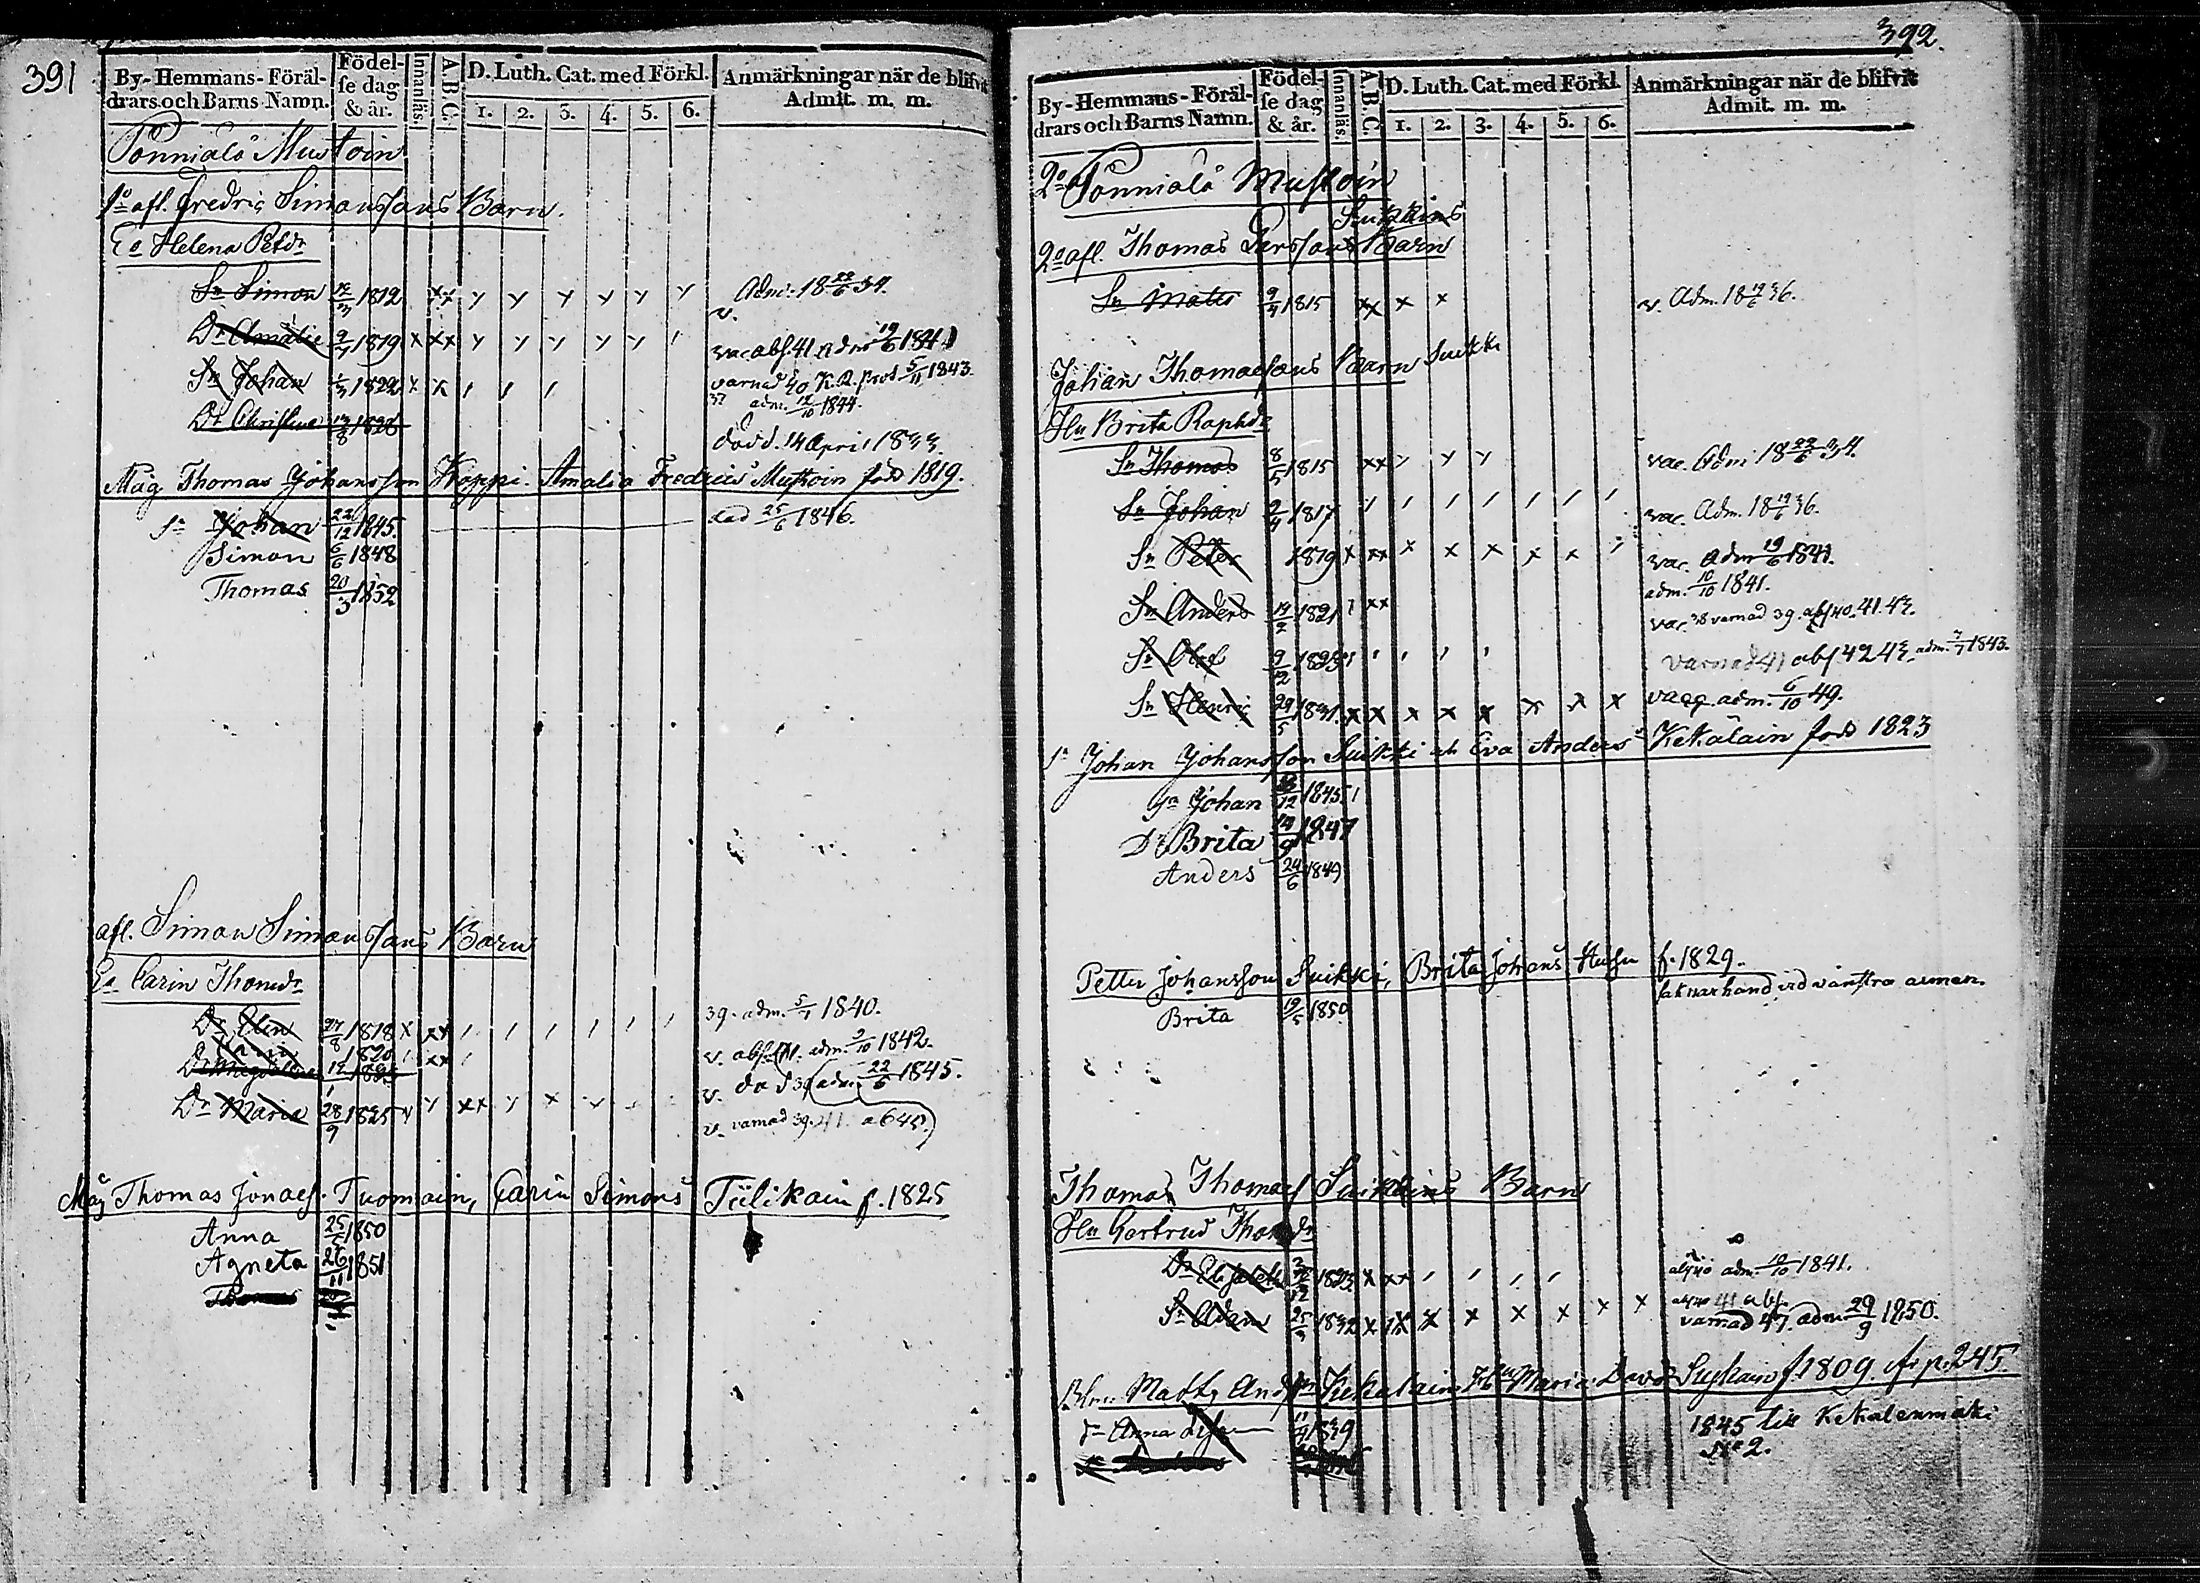 391
By-Hemmans-Föräl-
drars och Barns Namn.
Födel-
se dag
& år.
Innanläs.
A.B.C.
D. Luth. Cat. med Förkl.
1. 2. 3. 4. 5. 6.
Anmärkningar när de blifvit
Admit. m. m.
Ponniala Mustoin
1o afl. Fredric Simonssons Barn.
Ea Helena Petdr
Sn Simon 1812 xx y y y y y y v. Adm. 18 22/6 34.
Dr Amalie 9/7 1819 x xx y y y y y vac abs. 41 adm 19/6 1841
Sn Johan 1/3 1822 x x varnad 40 K.R. prot. 5/11 1843.
37 adm. 12/10 1844.
Dr Christina 13/8 1826 död d. 14 April 1833.
Måg Thomas Johansson Koppi. Amalia Fredrics Mustoin född 1819.
Sn Johan 22/12 1845. död 25/6 1846.
Simon 6/6 1848
Thomas 20/3 1852
afl. Simon Simonssons Barn
Ea Carin Thomdr
Dr Elin 27/8 1818 x xx 39. adm. 5/1 1840.
1820 xx v. abs. 41. adm. 2/10 1842.
Dr Magdalena v. död 39 adm. 22/6 1845.
Dr Maria 28/9 1825 y y xx y x v. varnad 39. 41. a645.
Måg Thomas Jonass. Tuomain, Carin Simons Tiilikain f. 1825
Anna 25/5 1850
Agneta 26/11 1851
Thomas
392.
By-Hemmans-Föräl-
drars och Barns Namn.
Födel-
se dag
& år.
Innanläs.
A.B.C.
D. Luth. Cat. med Förkl.
1. 2. 3. 4. 5. 6.
Anmärkningar när de blifvit
Admit. m. m.
2o Ponniala Mustoin
Suikkins
2o afl. Thomas Larssons Barn
Sn Mats 9/4 1815 xx x x v. Adm. 18 19/6 36.
Johan Thomassons Barn Suikki
Hu Brita Raphdr
Sn Thomas 8/5 1815 xx y y y vac. Adm 18 22/6 34.
Sn Johan 2/4 1817 vac. Adm. 18 19/6 36.
Sn Peter 1819 x xx x x x x x vac. adm 19/6 1841.
adm. 10/10 1841.
Sn Anders 14/2 1821 xx vac. 38 varnad 39. abs 40. 41. 43.
Sn Olof 9/12 1823 varnad 41 abs 42 43. adm. 2/7 1843.
Sn Henric 29/5 1831. x x x x x x x x vacc. adm. 6/10 49.
Sn Johan Johansson Suikki uh Eva Anders Kekälain född 1823
Sn Johan 1845
Dr Brita 14/9 1847
Anders 24/6 1849
Petter Johansson Suikki, Brita Johans f. 1829.
saknar hand vid vänstra armen.
Brita 19/5 1850
Thomas Thomass Suikkins Barn
Hu Gertrud Thomdr
Dr Elisabeth 1823 x xx adm. 10/10 1841.
41 abs.
Sn Adam 25/3 1832 x x x x x x x x varnad 47. adm 29/9 1850.
Matts Anderss Kekälain Hu Maria David f. 1809. fr p. 245.
Dr Anna Lisa 11/4 1839 1845 till Kekalenmäki
No 2.